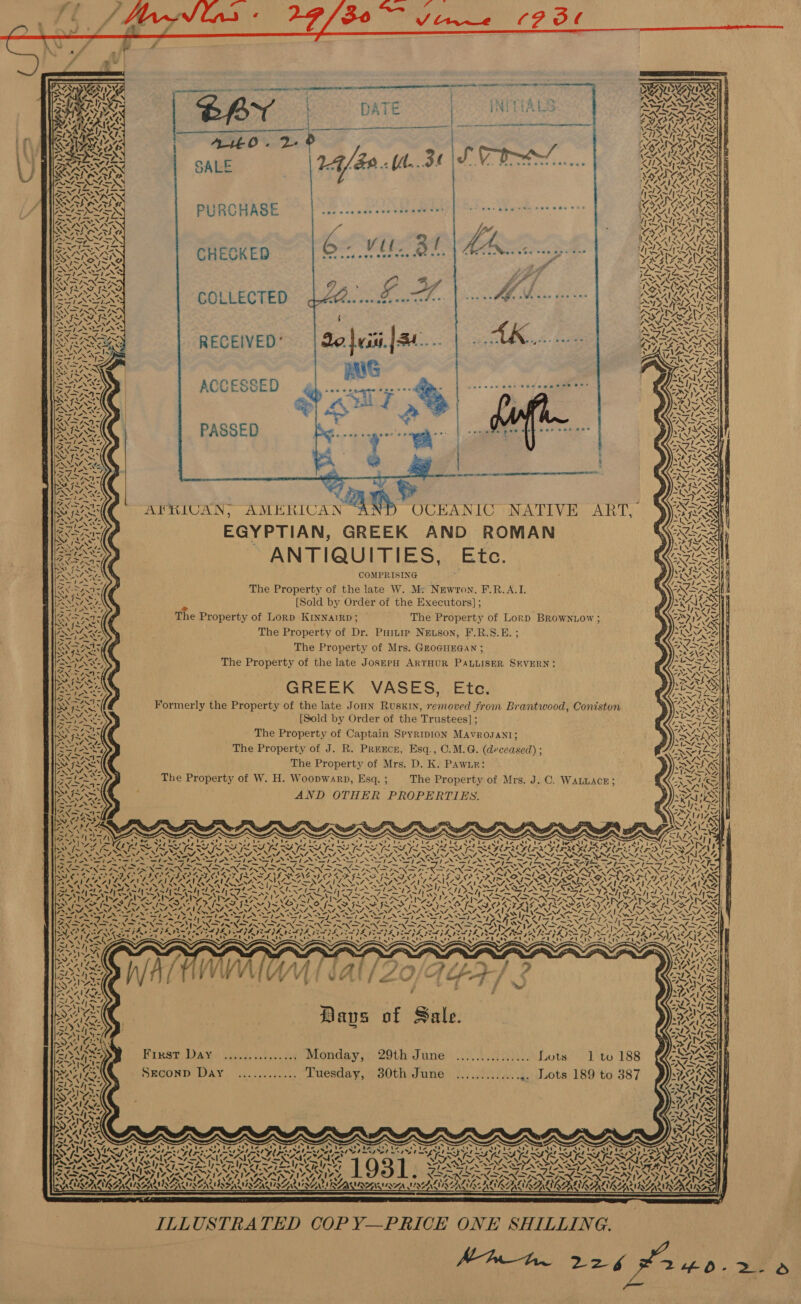 29/30 June 1931
BAY DATE INITIALS
SALE 29/30. VI. 31
PURCHASE
CHECKED 6. VII. 31
COLLECTED
RECEIVED 20/viii/31
AUG
ACCESSED
PASSED
AFRICAN, AMERICAN AND OCEANIC NATIVE ART,
EGYPTIAN, GREEK AND ROMAN
ANTIQUITIES, Etc.
COMPRISING
The Property of the late W. M. NEWTON, F.R.A.I.
[Sold by Order of the Executors];
The Property of LORD KINNAIRD; The Property of LORD BROWNLOW;
The Property of Dr. PHILIP NELSON, F.R.S.E.;
The Property of Mrs. GEOGHEGAN;
The Property of the late JOSEPH ARTHUR PALLISER SEVERN:
GREEK VASES, Etc.
Formerly the Property of the late JOHN RUSKIN, removed from Brantwood, Coniston
[Sold by Order of the Trustees];
The Property of Captain SPYRIDION MAVROJANI;
The Property of J. R. PREECE, Esq., C.M.G. (deceased);
The Property of Mrs. D. K. PAWLE:
The Property of W. H. WOODWARD, Esq.; The Property of Mrs. J. C. WALLACE;
AND OTHER PROPERTIES.
Days of Sale.
FIRST DAY ............... Monday, 29th June ............... Lots 1 to 188
SECOND DAY ............ Tuesday, 30th June ............... Lots 189 to 387
1931.
ILLUSTRATED COPY—PRICE ONE SHILLING.
226 £240-2-0